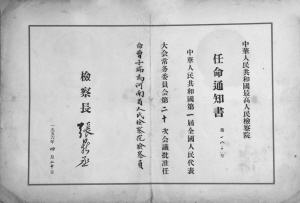 中華人民共和國最高人民檢察院
任命通知書
中華人民共和國第一屆全國人民代表
大会常务委員会第二十次会議批准任
命曹士瑞為河南省人民檢察院檢察員
檢察長 張鼎丞
一九五六年 四月